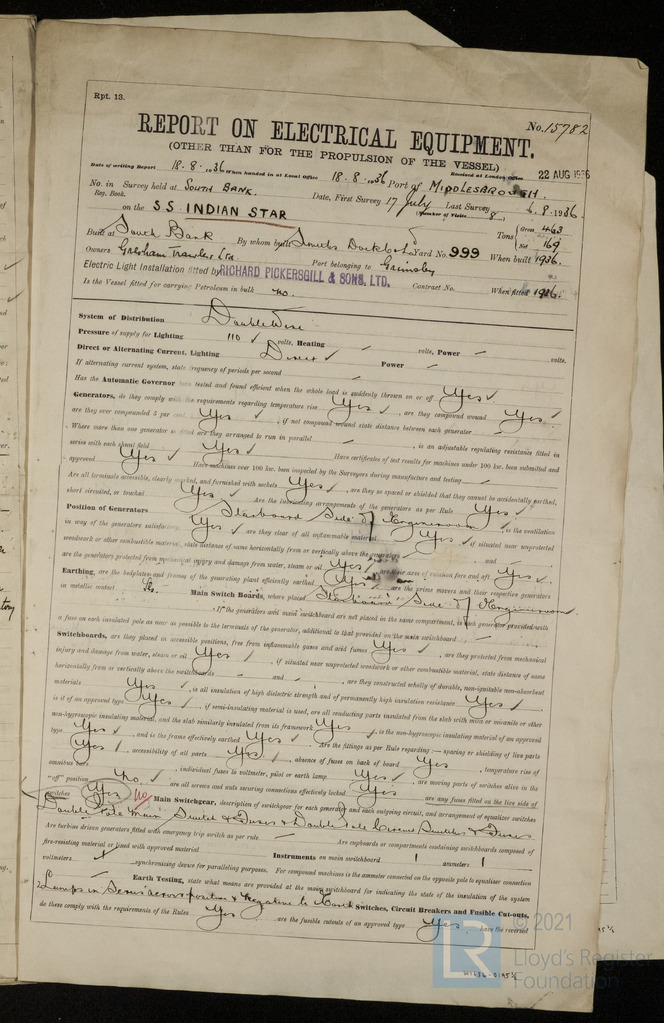 Rpt. 13.
No. 15782
REPORT ON ELECTRICAL EQUIPMENT.
(OTHER THAN FOR THE PROPULSION OF THE VESSEL)
Date of writing Report 18.8.1936 When handed in at Local Office 18.8.1936 Port of MIDDLESBROUGH Received at London Office 22 AUG 1936
No. in Survey held at SOUTH BANK. Date, First Survey 17 July Last Survey 6.8.1936
Reg. Book. (Number of Visits 8)
on the SS INDIAN STAR Tons Gross 463 Net 169
Built at South Bank By whom built Smiths Dock Co Ld Yard No. 999 When built 1936.
Owners Gresham Trawlers Ltd. Port belonging to Grimsby
Electric Light Installation fitted by RICHARD PICKERSGILL & SONS. LTD. Contract No. When fitted 1936.
Is the Vessel fitted for carrying Petroleum in bulk No.
System of Distribution Double Wire
Pressure of supply for Lighting 110 volts, Heating volts, Power volts.
Direct or Alternating Current, Lighting Direct Power
If alternating current system, state frequency of periods per second
Has the Automatic Governor been tested and found efficient when the whole load is suddenly thrown on or off Yes
Generators, do they comply with the requirements regarding temperature rise Yes, are they compound wound Yes
are they over compounded 5 per cent Yes, if not compound wound state distance between each generator
Where more than one generator is fitted are they arranged to run in parallel, is an adjustable regulating resistance fitted in
series with each shunt field Yes Have certificates of test results for machines under 100 kw. been submitted and
approved Yes Have machines over 100 kw. been inspected by the Surveyors during manufacture and testing
Are all terminals accessible, clearly marked, and furnished with sockets Yes, are they so spaced or shielded that they cannot be accidentally earthed,
short circuited, or touched Yes Are the lubricating arrangements of the generators as per Rule Yes
Position of Generators Starboard Side of Engineroom, is the ventilation
in way of the generators satisfactory Yes are they clear of all inflammable material Yes, if situated near unprotected
woodwork or other combustible material, state distance of same horizontally from or vertically above the generators and
are the generators protected from mechanical injury and damage from water, steam or oil Yes, are their axes of rotation fore and aft Yes
Earthing, are the bedplates and framing of the generating plant efficiently earthed Yes are the prime movers and their respective generators
in metallic contact Yes. Main Switch Boards, where placed Starboard Side of Engineroom
If the generators and main switchboard are not placed in the same compartment, is each generator provided with
a fuse on each insulated pole as near as possible to the terminals of the generator, additional to that provided on the main switchboard
Switchboards, are they placed in accessible positions, free from inflammable gases and acid fumes Yes, are they protected from mechanical
injury and damage from water, steam or oil Yes, if situated near unprotected woodwork or other combustible material, state distance of same
horizontally from or vertically above the switchboards and, are they constructed wholly of durable, non-ignitable non-absorbent
materials Yes, is all insulation of high dielectric strength and of permanently high insulation resistance Yes
is it of an approved type Yes, if semi-insulating material is used, are all conducting parts insulated from the slab with mica or micanite or other
non-hygroscopic insulating material, and the slab similarly insulated from its framework Yes, is the non-hygroscopic insulating material of an approved
type Yes, and is the frame effectively earthed Yes Are the fittings as per Rule regarding:— spacing or shielding of live parts
Yes, accessibility of all parts Yes, absence of fuses on back of board Yes, temperature rise of
omnibus bars Yes, individual fuses to voltmeter, pilot or earth lamp Yes, are moving parts of switches alive in the
"off" position No, are all screws and nuts securing connections effectively locked Yes are any fuses fitted on the live side of
switches Yes No Main Switchgear, description of switchgear for each generator and each outgoing circuit, and arrangement of equalizer switches
Double Pole Main Switch & Fuses & Double Pole Circuit Switches & Fuses
Are turbine driven generators fitted with emergency trip switch as per rule Are cupboards or compartments containing switchboards composed of
fire-resisting material or lined with approved material Instruments on main switchboard 1 ammeters 1
voltmeters synchronising device for paralleling purposes. For compound machines is the ammeter connected on the opposite pole to equaliser connection
Earth Testing, state what means are provided at the main switchboard for indicating the state of the insulation of the system
2 Lamps in Series across positive & Negative to Earth Switches, Circuit Breakers and Fusible Cut-outs,
do these comply with the requirements of the Rules Yes, are the fusible cutouts of an approved type Yes. have the reversed
© 2021
LR
Lloyd's Register
Foundation